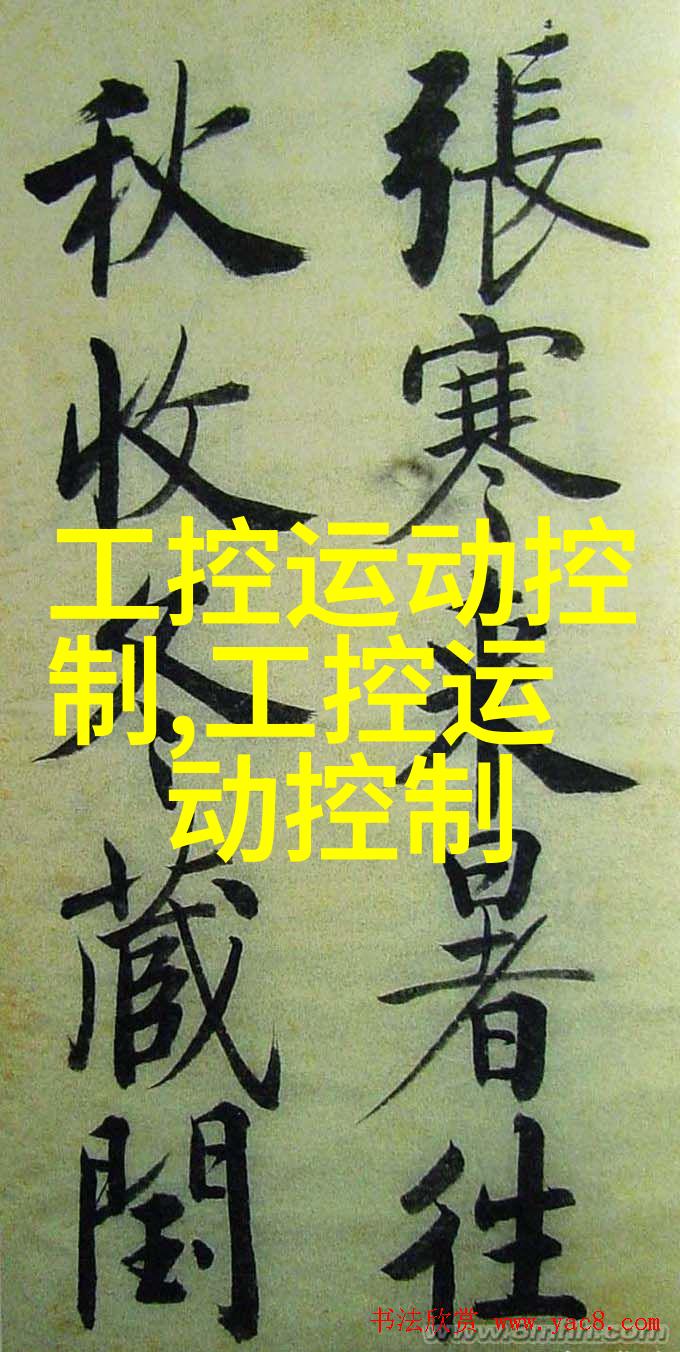 張寒来暑往
秋收冬蔵閏
工控运动控
制,工控运
动控制
书法欣赏 www.yac8.com